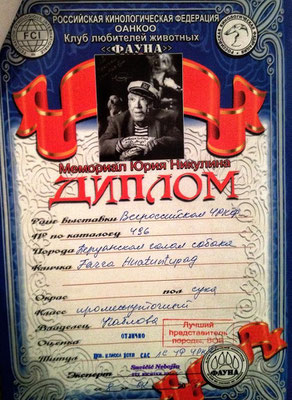 РОССИЙСКАЯ КИНОЛОГИЧЕСКАЯ ФЕДЕРАЦИЯ
ОАНКОО
Клуб любителей животных
«ФАУНА»
FCI
Мемориал Юрия Никулина
ДИПЛОМ
Ранг выставки Всероссийская ЧРКФ
№ по каталогу 486
Порода Перуанская голая собака
Кличка
Окрас пол сука
Класс промежуточный
Владелец Павлова
Оценка ОТЛИЧНО
Лучший
представитель
породы, BOB
Титул
Эксперт
ФАУНА